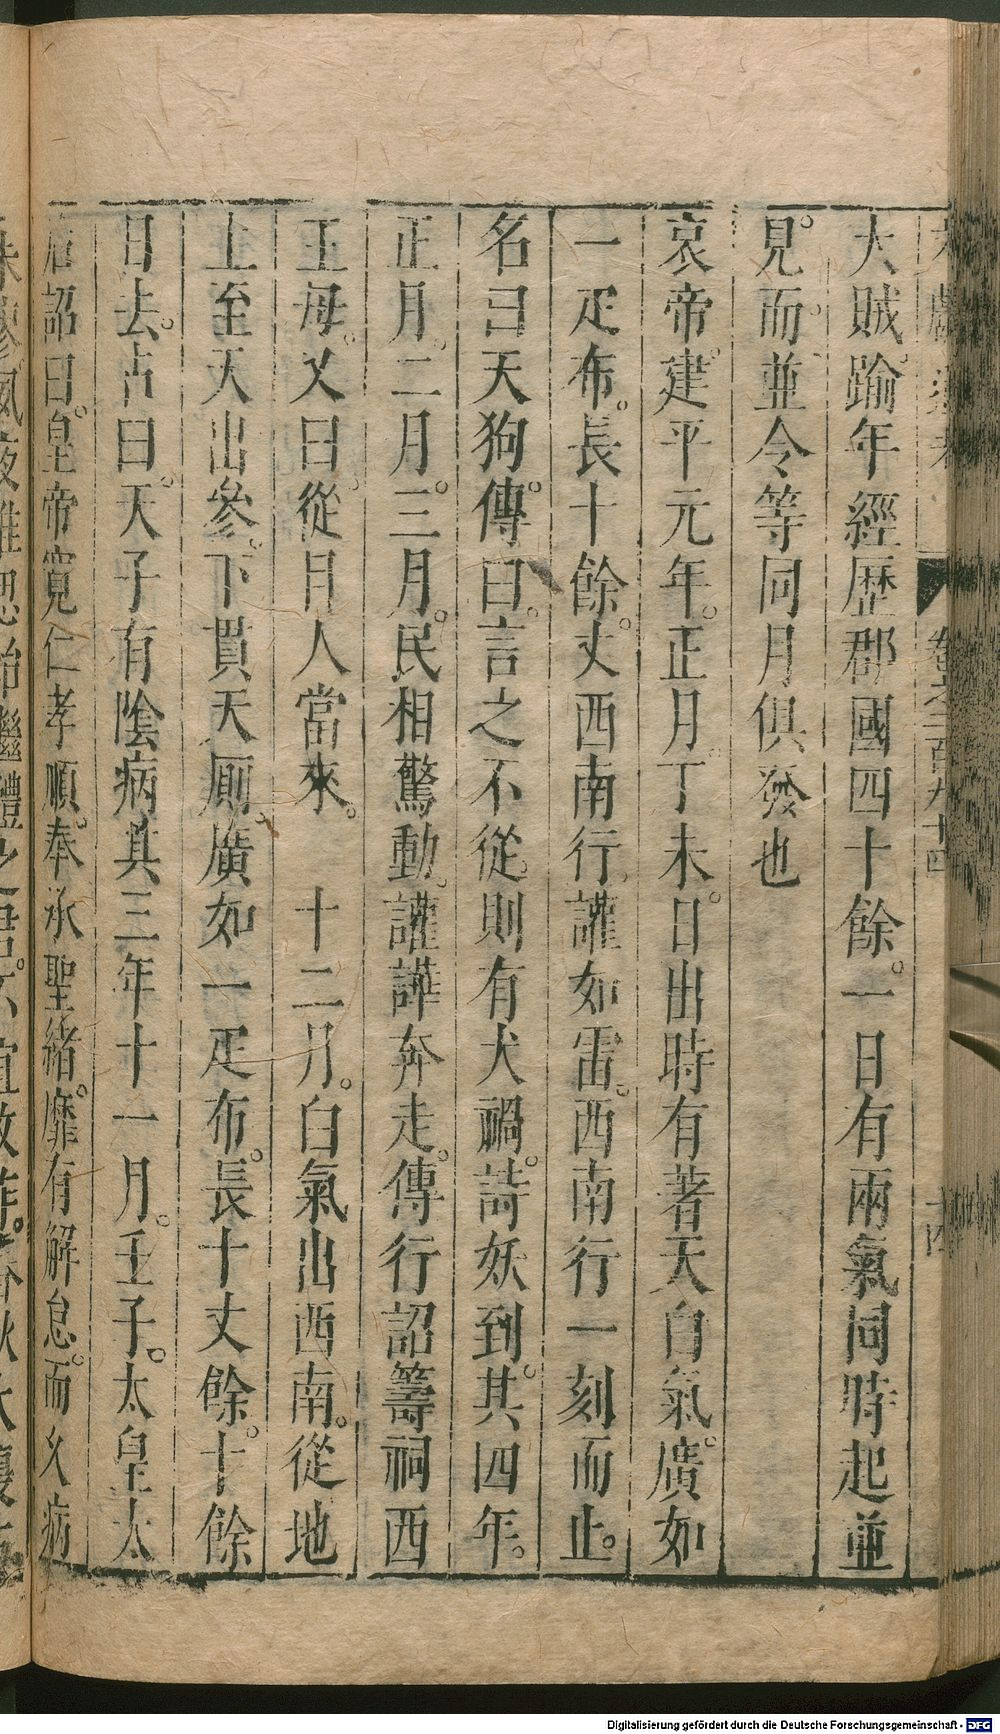 卷之二百九十四
大賊踰年經歷郡國四十餘一日有兩氣同時起並
見而並令等同月俱發也
哀帝建平元年正月丁未日出時有著天白氣廣如
一疋布長十餘丈西南行讙如雷西南行一刻而止
名曰天狗傳曰言之不從則有犬禍詩妖到其四年
正月二月三月民相驚動讙譁奔走傳行詔籌祠西
王母又曰從目人當來　十二月白氣出西南從地
上至天出參下貫天廁廣如一疋布長十丈餘十餘
日去占曰天子有陰病其三年十一月壬子太皇太
后詔曰皇帝寬仁孝順奉承聖緒靡有解怠而久病
夙夜惟思殆繼體之君不宜改作春秋大復古
Digitalisierung gefördert durch die Deutsche Forschungsgemeinschaft - DFG